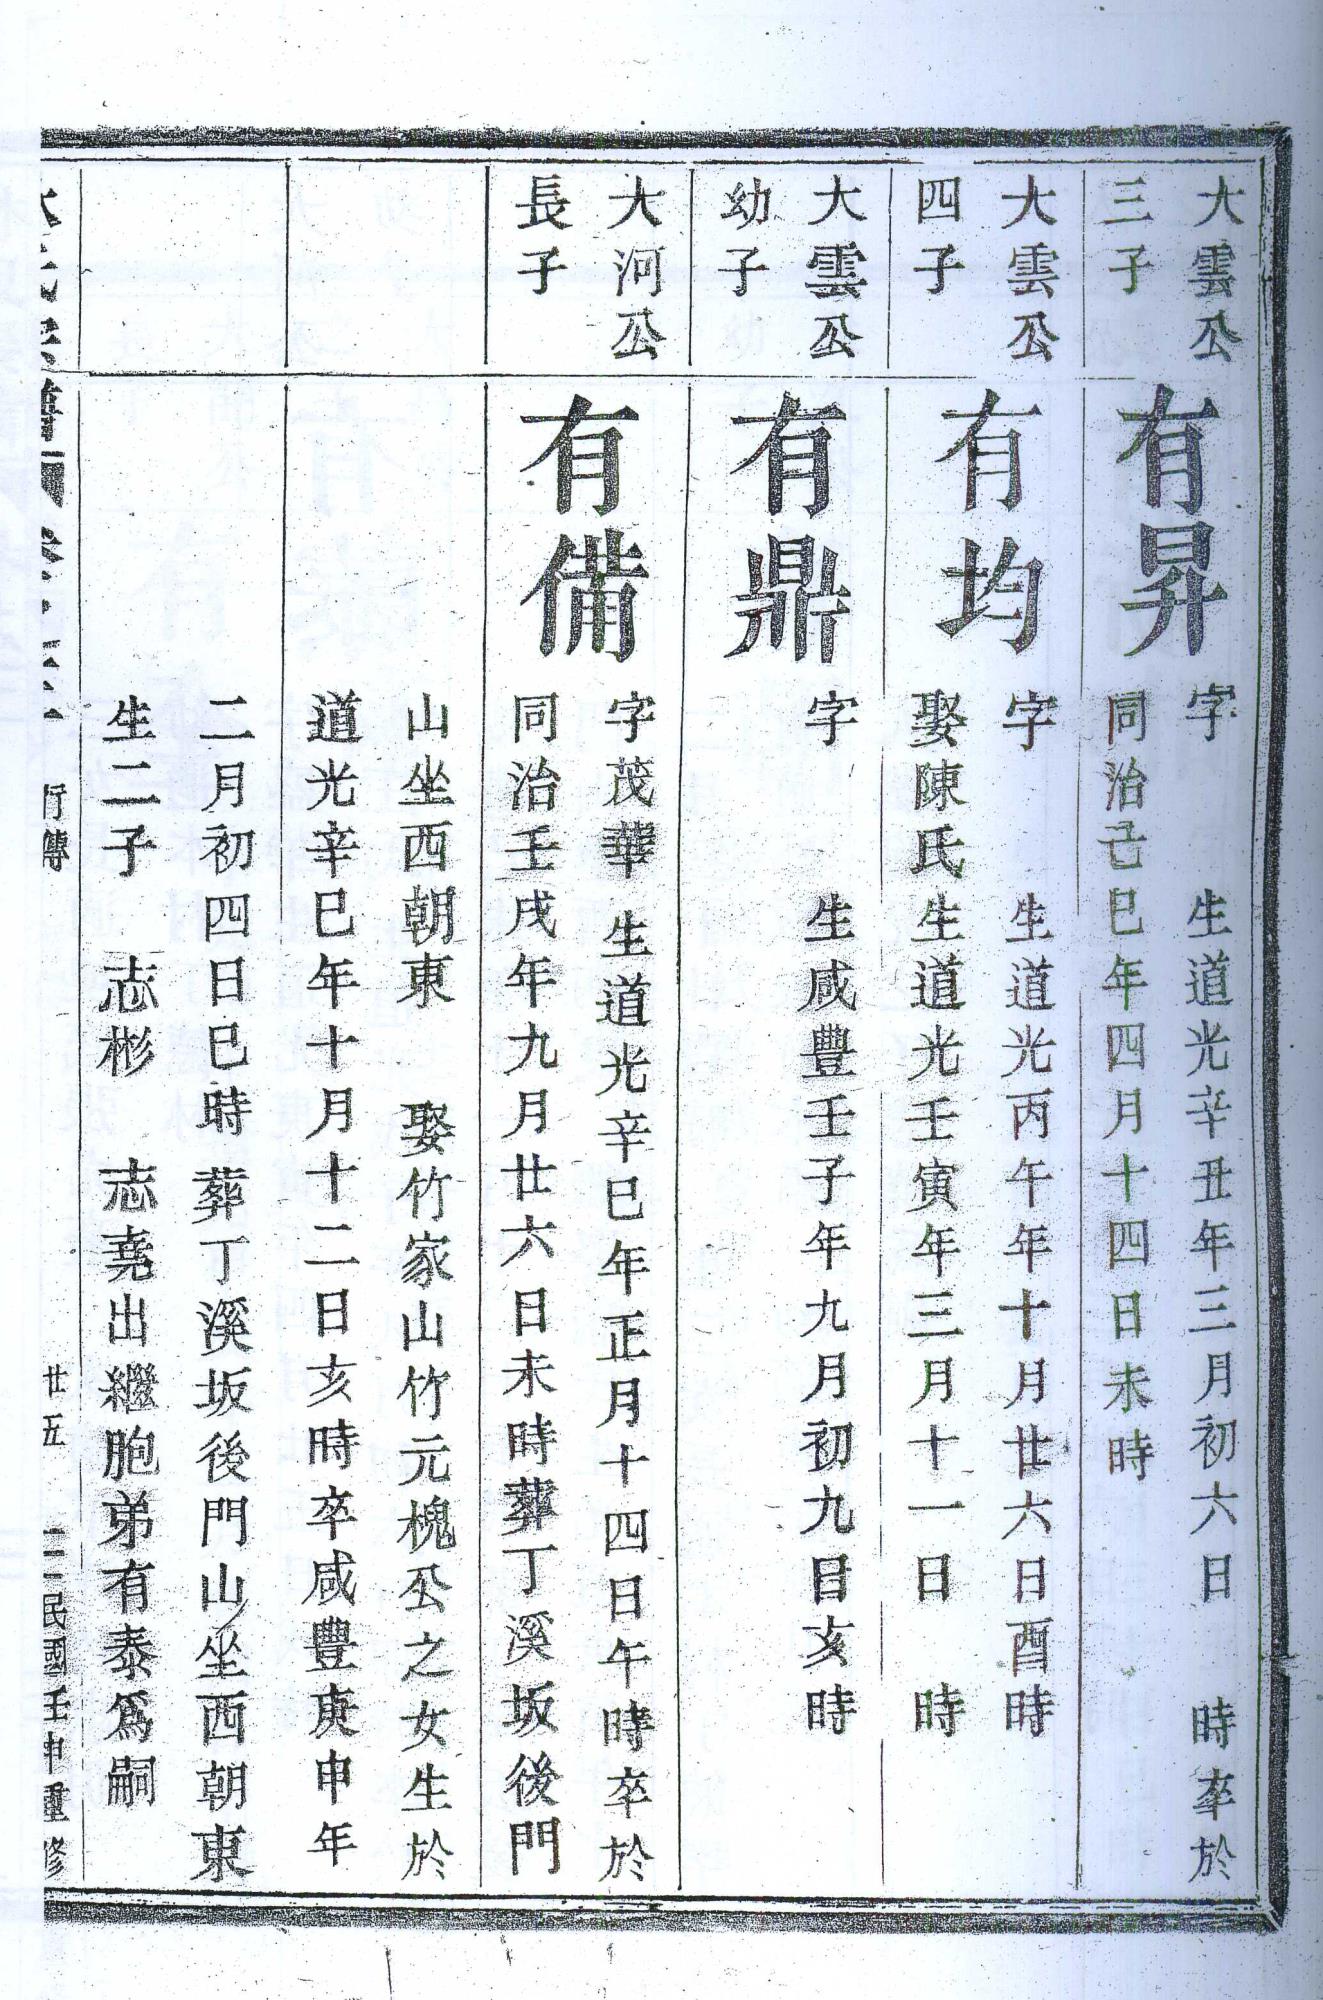 大雲公
三子
有昇
字 生道光辛丑年三月初六日 時卒於
同治己巳年四月十四日未時
大雲公
四子
有均
字 生道光丙午年十月廿六日酉時
娶陳氏生道光壬寅年三月十一日 時
大雲公
幼子
有鼎
字 生咸豐壬子年九月初九日亥時
大河公
長子
有備
字茂華 生道光辛巳年正月十四日午時卒於
同治壬戌年九月廿六日未時葬丁溪坂後門
山坐西朝東 娶竹家山竹元槐公之女生於
道光辛巳年十月十二日亥時卒咸豐庚申年
二月初四日巳時 葬丁溪坂後門山坐西朝東
生二子 志彬 志堯出繼胞弟有泰爲嗣
行傳
廿五
民國壬申重修